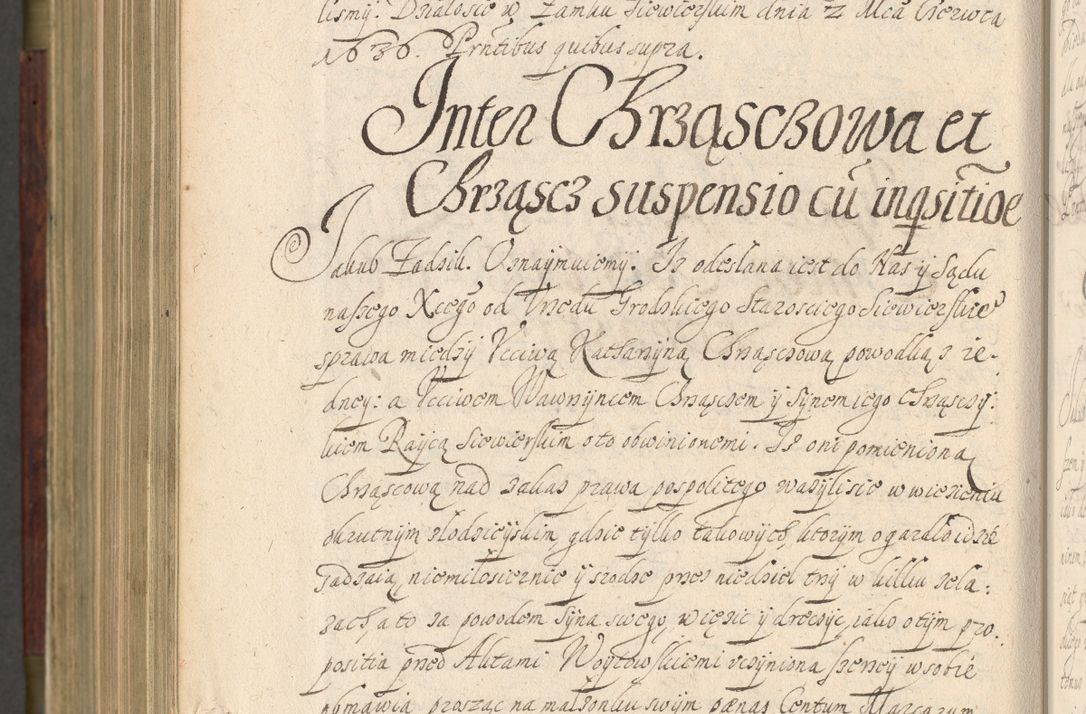 lismy. Działosie w Zamku Siewierskim dnia 2 Mca Czerwca
1636. Prntibus quibus supra.
Inter Chrząsczowa et
Chrząscz suspensio cū inqsitiōe
Jakub Zadzik. Oznaymuiemy. Iż odesłana iest do Nas ÿ Sądu
naszego Xcego od Vrzędu Grodzkiego Staroscięgo Siewierskie°
sprawa międzÿ Vcciwą Katharzÿną Chrząsczową powodką z ie-
dney: a Vcciwem Wawrzyńcem Chrząsczem ÿ Sÿnem iego Chrząsczÿ:
kiem Raÿcą Siewierskim oto obwinionemi. Iż oni pomienioną
Chrząscową nad zakaz prawa pospolitego wazÿlisie w więzieniu
okrutnÿm złodzieÿskim gdzie tÿlko takowÿch, ktorÿm o gardło idzie
sadzaią niemiłosiernie ÿ srodze przez niedziel trzÿ w kilku zela:
zach a to za powodem Sÿna swego, więzic ÿ dręczÿc, iako o tÿm pro.
positia przed Aktami Woÿtowskiemi vczÿniona szerzeÿ w sobie
obmawia prosząc na małżonku swÿm pænas Centum Marcarum